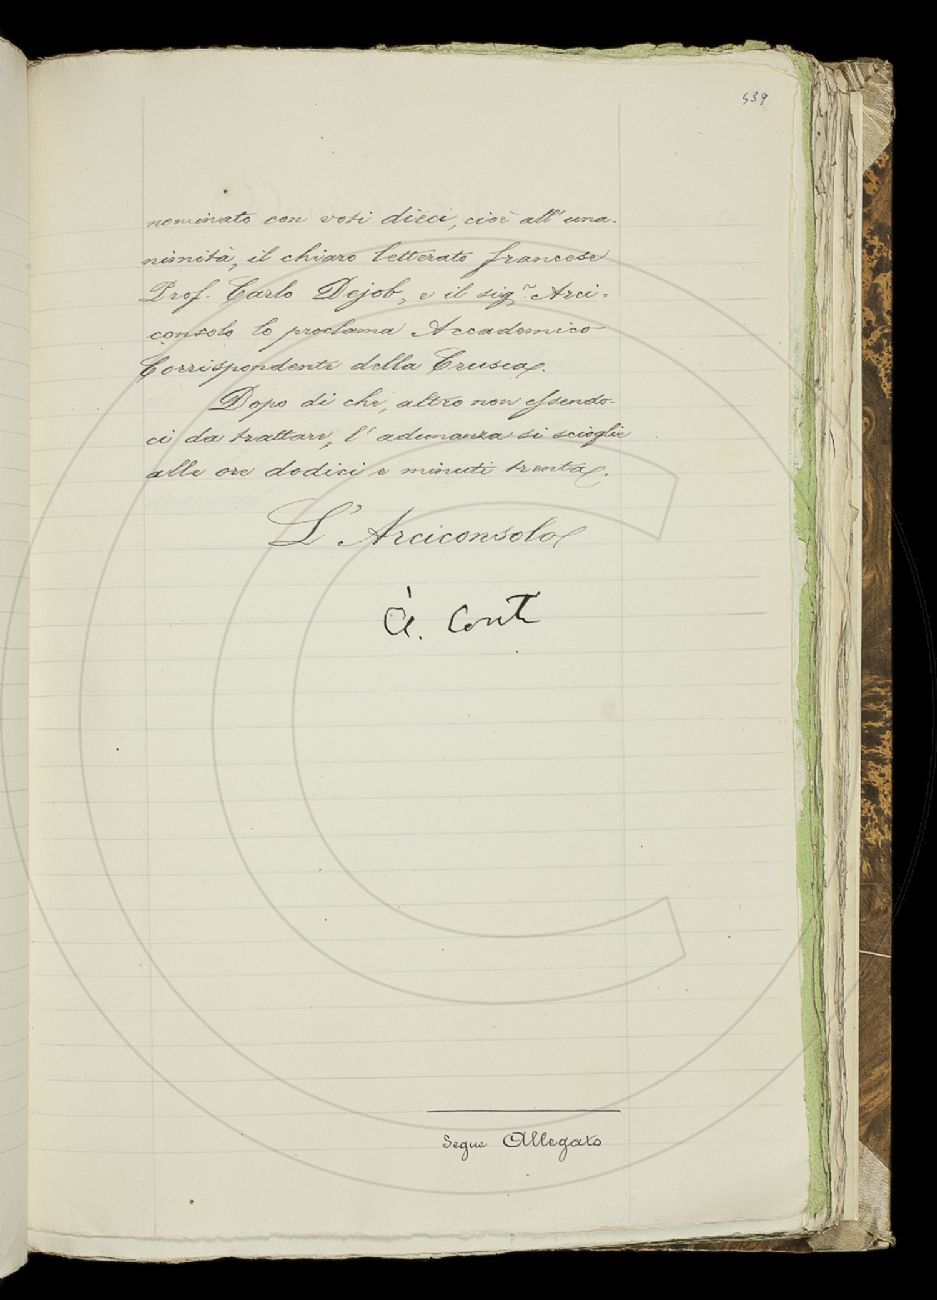 439
nominato con voti dieci, cioè all' una-
nimità, il chiaro letterato francese
Prof. Carlo Dejob, e il sig.r Arci-
consolo lo proclama Accademico
Corrispondente della Crusca.
Dopo di che, altro non essendo-
ci da trattare, l' adunanza si scioglie
alle ore dodici e minuti trenta.
L' Arciconsolo
A. Conti
Segue Allegato